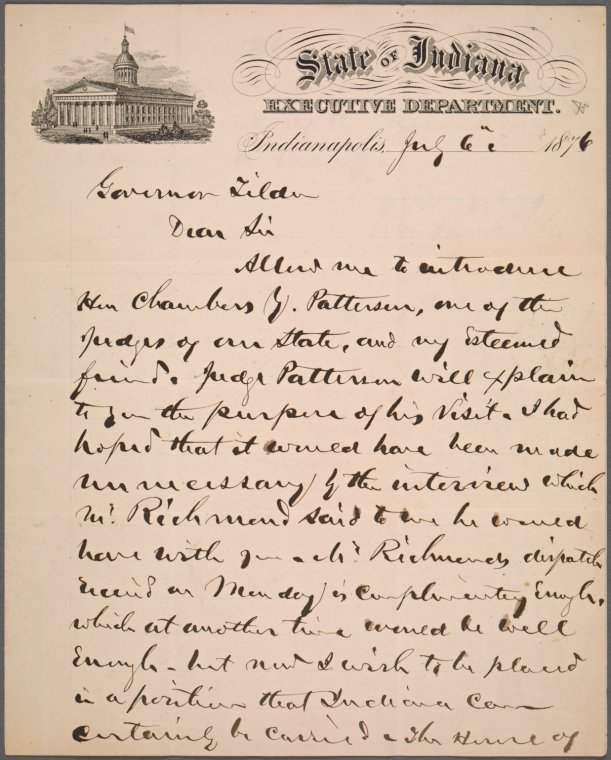 State of Indiana
EXECUTIVE DEPARTMENT.
Indianapolis, July 6th 1876
Governor Tilden
Dear Sir
Allow me to introduce
Hon Chambers Y. Patterson, one of the
Judges of our State, and my Esteemed
friend. Judge Patterson will explain
to you the purpose of his Visit. I had
hoped that it would have been made
unnecessary by the interview which
Mr. Richmond said to me he would
have with you. Mr. Richmonds dispatch
Receivd on Monday is complimentary Enough,
which at another time would be well
Enough - but now I wish to be placed
in a position that Indiana can
certainly be carried. The House of